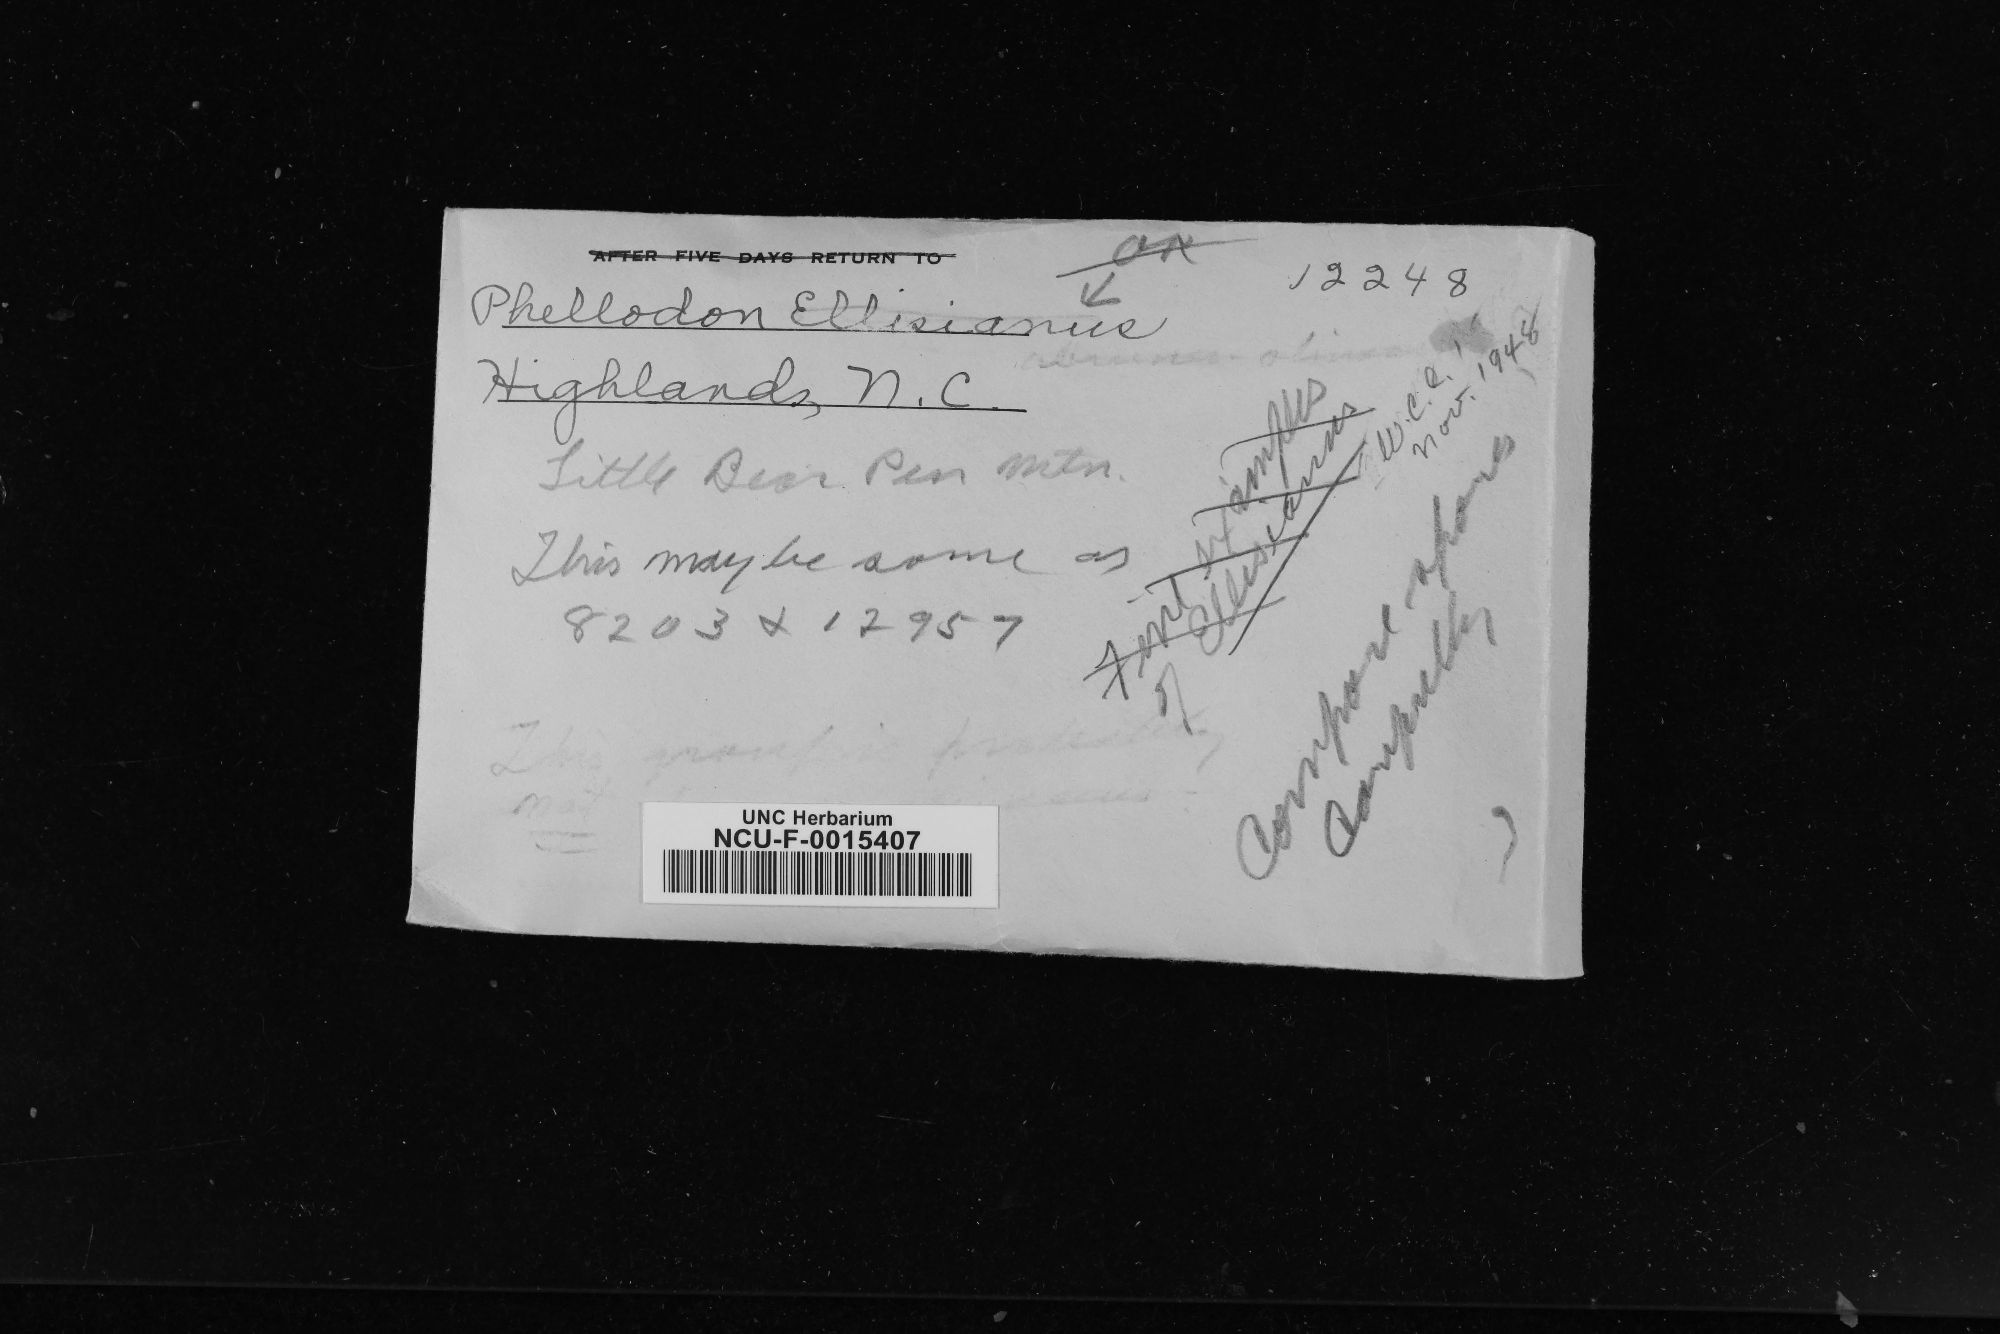 AFTER FIVE DAYS RETURN TO
OK
12248
Phellodon Ellisianus
Highlands, N.C.
Little Bear Pen Mtn.
This may be same as
8203 & 12957
First st amples
of Ellisianus
W.C.C.
Nov. 1948
Compare spores
Carefully
This group is probably
not
UNC Herbarium
NCU-F-0015407